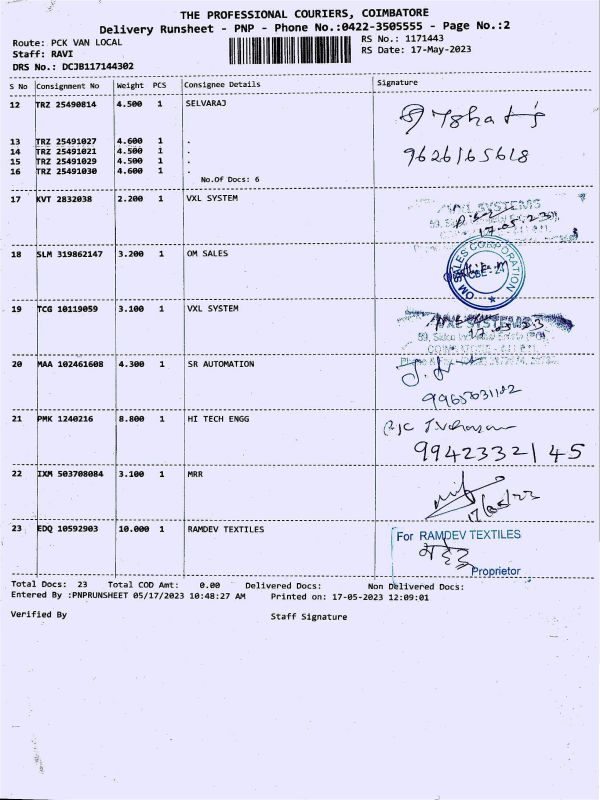 THE PROFESSIONAL COURIERS, COIMBATORE
Delivery Runsheet - PNP - Phone No.:0422-3505555 - Page No.:2
Route: PCK VAN LOCAL
Staff: RAVI
DRS No.: DCJB117144302
RS No.: 1171443
RS Date: 17-May-2023
S No Consignment No Weight PCS Consignee Details Signature
12 TRZ 25490814 4.500 1 SELVARAJ
13 TRZ 25491027 4.600 1 .
14 TRZ 25491021 4.500 1 .
15 TRZ 25491029 4.500 1 .
16 TRZ 25491030 4.600 1 .
9626165618
No.Of Docs: 6
17 KVT 2832038 2.200 1 VXL SYSTEM
18 SLM 319862147 3.200 1 OM SALES
OM SALES CORPORATION
19 TCG 10119059 3.100 1 VXL SYSTEM
20 MAA 102461608 4.300 1 SR AUTOMATION
21 PMK 1240216 8.800 1 HI TECH ENGG
9942332145
22 IXM 503708084 3.100 1 MRR
17/05/23
23 EDQ 10592903 10.000 1 RAMDEV TEXTILES
For RAMDEV TEXTILES
Proprietor
Total Docs: 23 Total COD Amt: 0.00 Delivered Docs: Non Delivered Docs:
Entered By :PNPRUNSHEET 05/17/2023 10:48:27 AM Printed on: 17-05-2023 12:09:01
Verified By Staff Signature